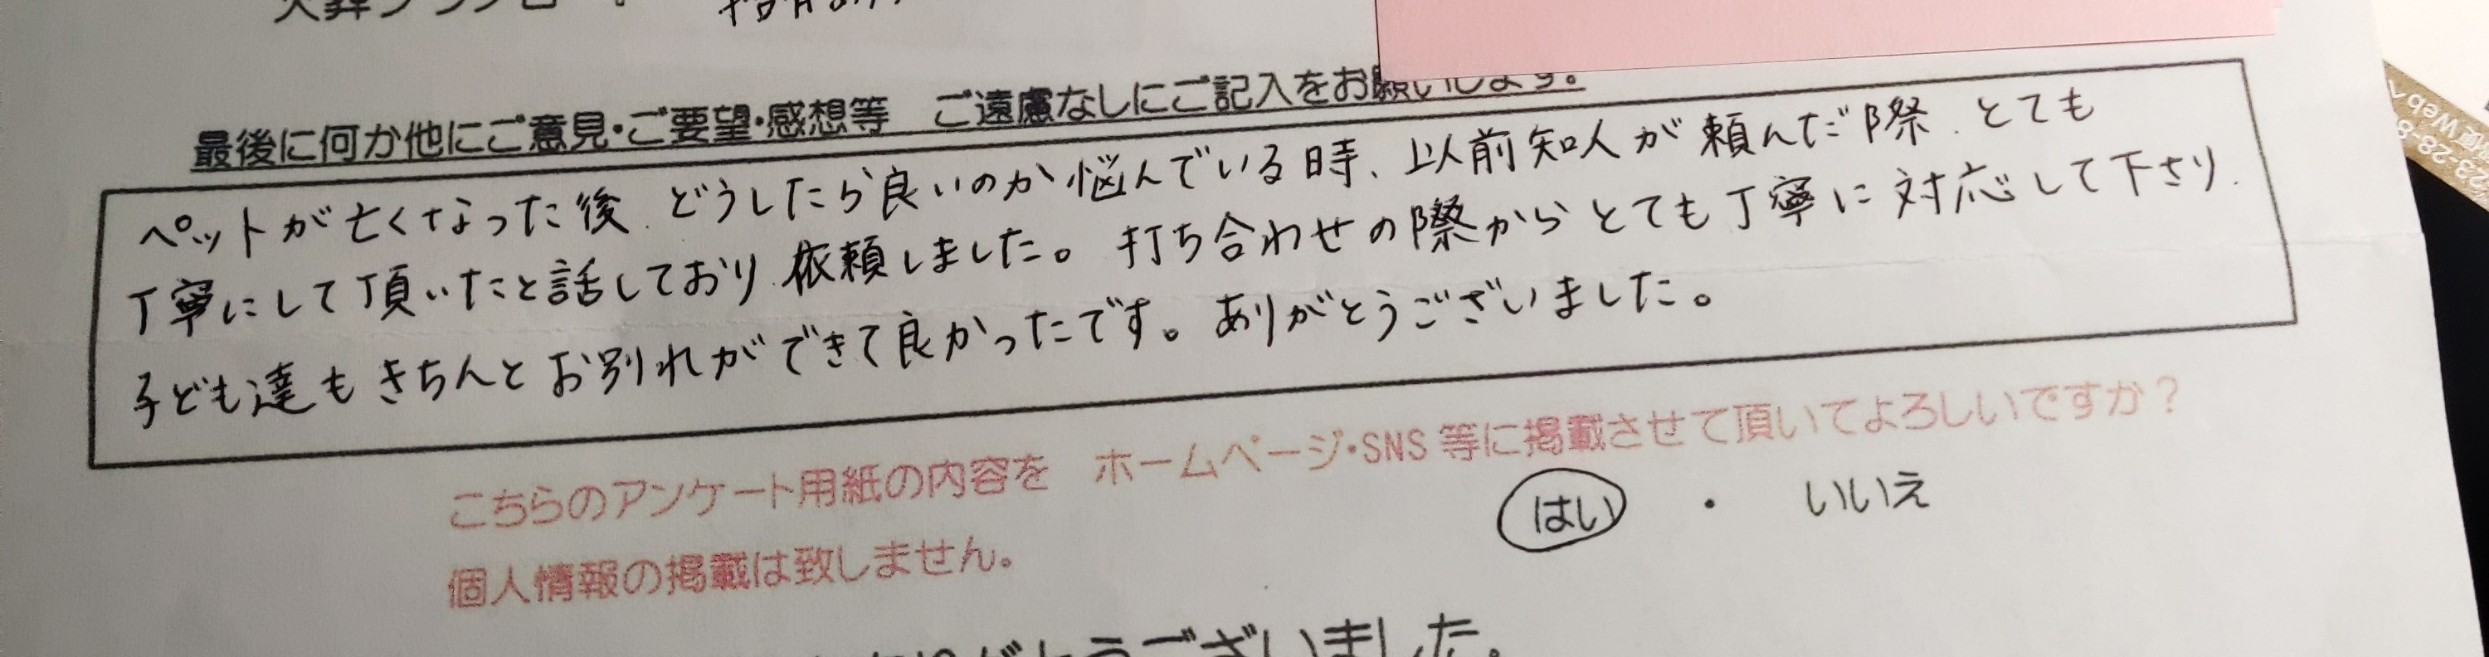 最後に何か他にご意見・ご要望・感想等　ご遠慮なしにご記入をお願いします。
ペットが亡くなった後、どうしたら良いのか悩んでいる時、以前知人が頼んだ際、とても
丁寧にして頂いたと話しており、依頼しました。打ち合わせの際からとても丁寧に対応して下さり、
子ども達もきちんとお別れができて良かったです。ありがとうございました。
こちらのアンケート用紙の内容を　ホームページ・SNS等に掲載させて頂いてよろしいですか？
はい　・　いいえ
個人情報の掲載は致しません。
ございました。